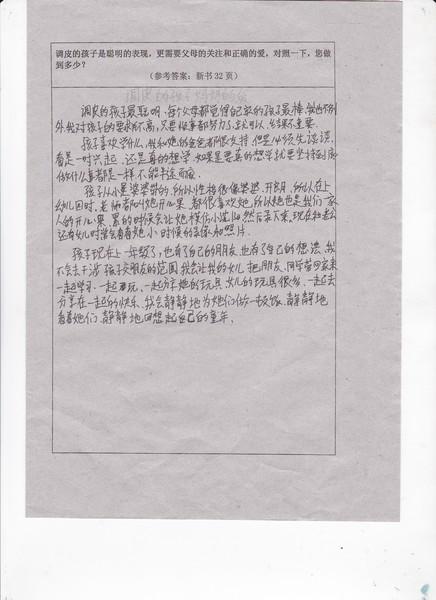 调皮的孩子是聪明的表现，更需要父母的关注和正确的爱，对照一下，您做
到多少？
（参考答案：新书 32 页）
调皮的孩子最聪明，每个父母都觉得自家的孩子最棒，我也不例
外，我对孩子的要求不高，只要做事都努力了，就可以，结果不重要。
孩子喜欢学什么，我和她的爸爸都很支持，但是必须先谈谈，
看是一时兴起，还是真的想学，如果是要真的想学就要坚持到底
做什么事都是一样不能半途而废。
孩子从小是婆婆带的，所以性格很像婆婆，开朗，所以在上
幼儿园时，老师都叫她开心果，都很喜欢她，所以她也是我们一家
人的开心果，累的时候会让她模仿小沈阳，然后录下来，现在和老公
还有儿时常会看看她小时候的录像和照片。
孩子现在上一年级了，也有了自己的朋友，也有了自己的想法，我
不会去干涉孩子交朋友的范围，我会让我的女儿把朋友、同学带回家来
一起学习，一起玩，一起分享她的玩具，女儿的玩具很多，一起去
分享在一起的快乐，我会静静地为她们做一顿饭，静静地
看着她们，静静地回想起自己的童年。